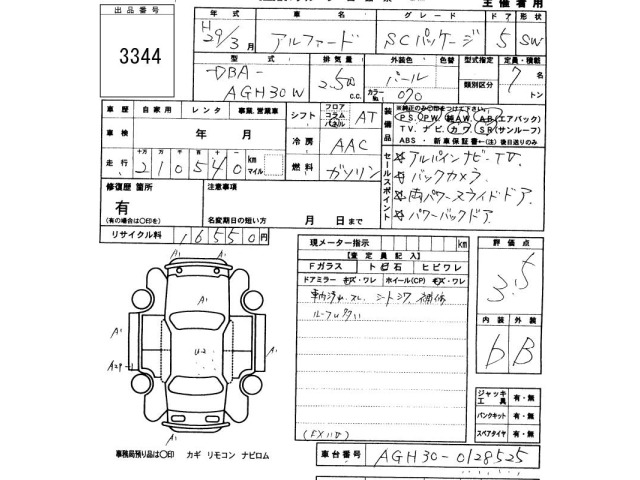 主催者用
出品番号
3344
年式 車名 グレード ドア 形状
H29/3月 アルファード SCパッケージ 5 SW
型式 排気量 外装色 色替 型式指定 定員・積載
DBA-AGH30W 2.50 c.c. パール 類別区分 7 トン
カラーNo. 070
車歴 自家用 レンタ 事業,営業車
シフト フロア コラム パネル AT
装備品
※純正のみ○印をつけて下さい
PS. PW. 純AW. AB(エアバック)
TV. ナビ. カワ. SR(サンルーフ)
ABS・新車保証書←(注)後日送りのみ
車検 年 月
冷房 AAC
走行 十万 万 千 百 十
210540 km マイル
燃料 ガソリン
セールスポイント
☆アルパインナビ・TV.
☆バックカメラ
☆両パワースライドドア.
☆パワーバックドア
修復歴 箇所
有
(有の場合は○印を)
注意事項
名変期日の短い方 月 日まで
リサイクル料 16550円
現メーター指示 km
【査定員記入】
Fガラス トビ石 ヒビワレ
ドアミラー キズ・ワレ ホイール(CP) キズ・ワレ
評価点
3.5
内装 外装
b B
A1
A1
A1
A1
A29
U-2
ジャッキ工具 有・無
パンクキット 有・無
スペアタイヤ 有・無
事務局預り品は○印 カギ リモコン ナビロム
車台番号 AGH30-0128525